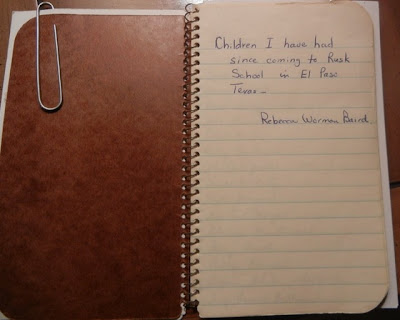 Children I have had
since coming to Rusk
School in El Paso
Texas -
Rebecca Worman Baird